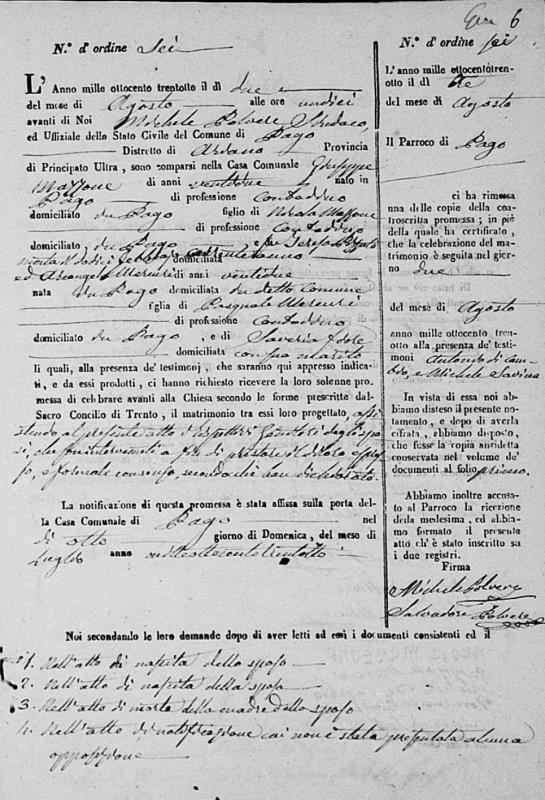 6
N.° d'ordine Sei
L'Anno mille ottocento trentotto il dì due
del mese di Agosto alle ore undici
avanti di Noi Michele Polvere Sindaco,
ed Uffiziale dello Stato Civile del Comune di Pago
Distretto di Provincia
di Principato Ultra, sono comparsi nella Casa Comunale Giuseppe
Mazzone di anni ventidue nato in
Pago di professione contadino
domiciliato in Pago figlio di Nicola Mazzone
di professione contadino
domiciliato in Pago e fu Teresa
morta domiciliata
ed Arcangela Mercuri di anni ventidue
nata in Pago domiciliata in detto comune
figlia di Pasquale Mercuri
di professione contadino
domiciliato in Pago, e di Saveria
domiciliata con suo marito
li quali, alla presenza de' testimonj, che saranno qui appresso indica-
ti, e da essi prodotti, ci hanno richiesto ricevere la loro solenne pro-
messa di celebrare avanti alla Chiesa secondo le forme prescritte dal
Sacro Concilio di Trento, il matrimonio tra essi loro progettato, assi
stendo al presente atto i rispettivi Genitori degli spo
si, che sono intervenuti a fin di prestare il di loro espres
so, e formale consenso, secondo che han dichiarato.
La notificazione di questa promessa è stata affissa sulla porta del-
la Casa Comunale di Pago nel
dì otto giorno di Domenica, del mese di
Luglio anno milleottocentotrentotto
Noi secondando le loro domande dopo di aver letti ad essi i documenti consistenti ed il
1. Nell'atto di nascita dello sposo
2. Nell'atto di nascita della sposa
3. Nell'atto di morte della madre dello sposo
4. Nell'atto di notificazione cui non è stata presentata alcuna
opposizione
N.° d'ordine Sei
L'anno mille ottocentotren-
otto il dì tre
del mese di Agosto
Il Parroco di Pago
ci ha rimessa
una delle copie della con-
troscritta promessa; in piè
della quale ha certificato,
che la celebrazione del ma-
trimonio è seguita nel gior-
no due
del mese di Agosto
anno mille ottocento tren-
otto alla presenza de' testi-
moni Antonio di
e Michele Savina
In vista di essa noi ab-
biamo disteso il presente no-
tamento, e dopo di averla
cifrata, abbiamo disposto,
che fusse la copia anzidetta
conservata nel volume de'
documenti al folio primo.
Abbiamo inoltre accusa-
to al Parroco la ricezione
della medesima, ed abbia-
mo formato il presente
atto ch'è stato inscritto su
i due registri.
Firma
Michele Polvere
Salvadore Polvere